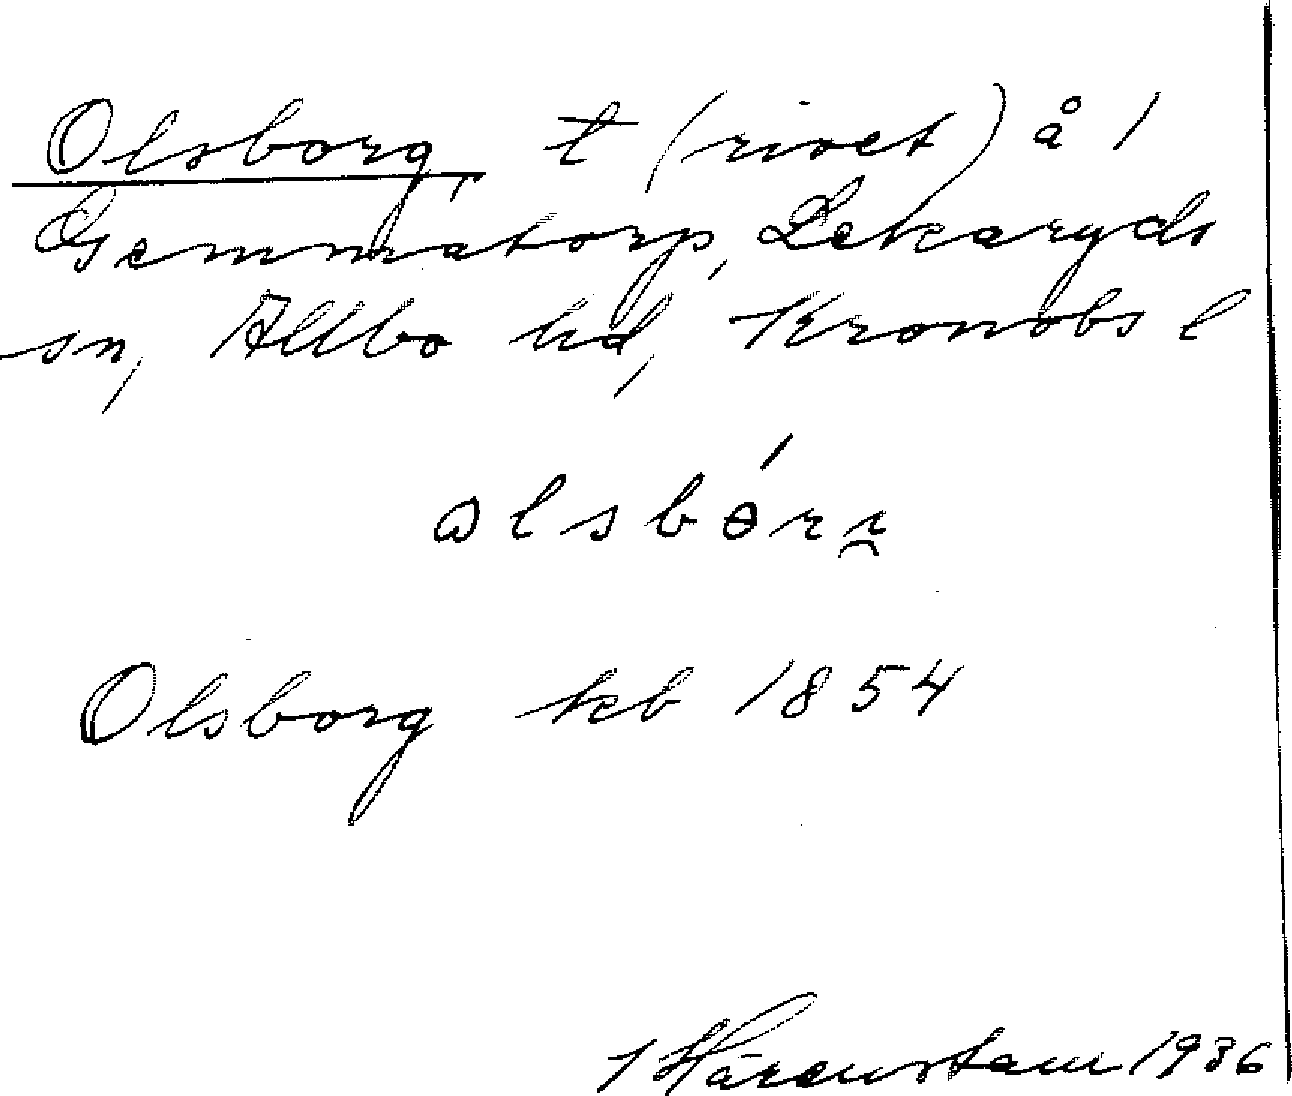 Olsborg t (rivet) å 1
Gemmatorp, Lekaryds
sn, Allbo hd, Kronobs l
olsbɵ́rɪ̯
Olsborg kb 1854
I Härenstam 1936